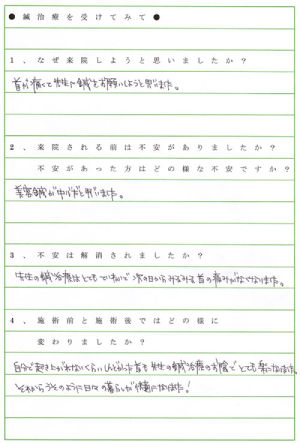 ● 鍼治療を受けてみて ●
1、なぜ来院しようと思いましたか？
首が痛くて先生に鍼をお願いしようと思いました。
2、来院される前は不安がありましたか？
不安があった方はどの様な不安ですか？
美容鍼が中心だと思いました。
3、不安は解消されましたか？
先生の鍼治療はとてもていねいで次の日からみるみる首の痛みがなくなりました。
4、施術前と施術後ではどの様に
変わりましたか？
自分で起き上がれないくらいしんどかった首も先生の鍼治療のお陰でとても楽になりました。
それからうそのように日々の暮らしが快適になりました！